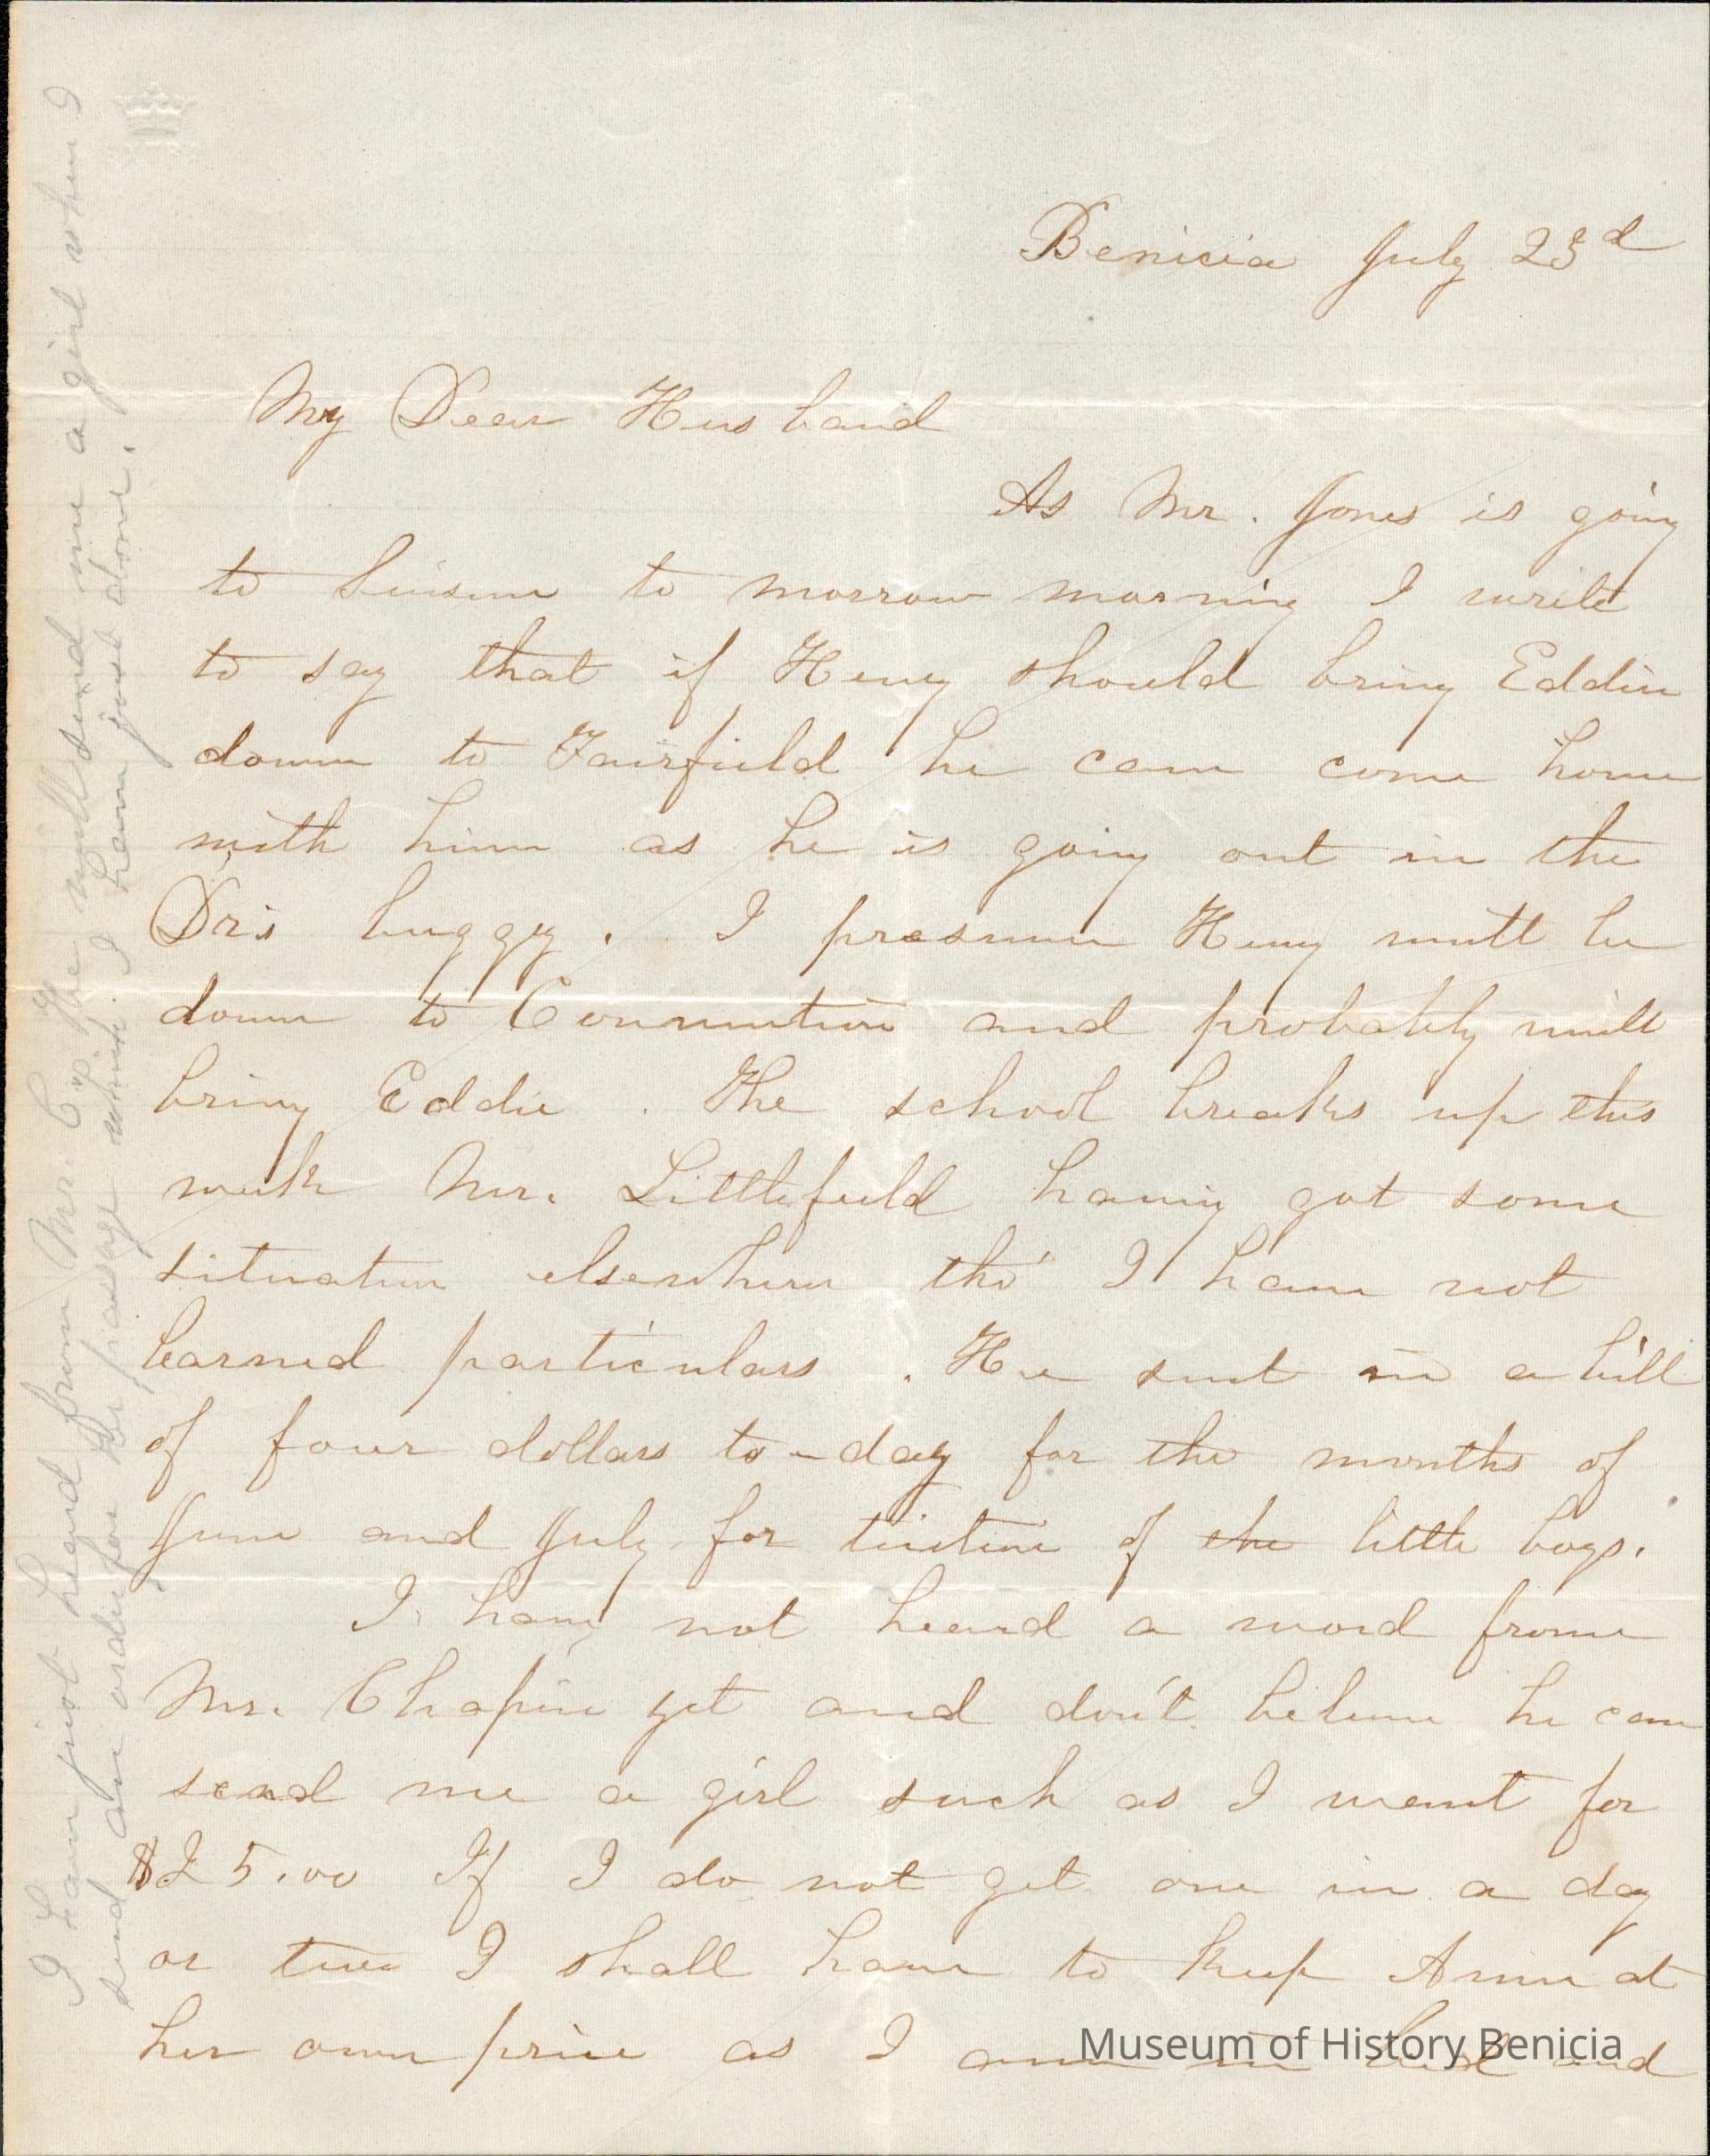 Benicia July 23d
My Dear Husband
As Mr. Jones is going
to Suisun to morrow morning I write
to say that if Henry should bring Eddie
down to Fairfield he can come home
with him as he is going out in the
Dr's buggy. I presume Henry will be
down to Convention and probably will
bring Eddie. The school breaks up this
week Mr. Littlefield having got some
situation elsewhere tho' I have not
learned particulars. He sent in a bill
of four dollars to-day for the months of
June and July for tuition of the little boys.
I have not heard a word from
Mr. Chapin yet and don't believe he can
send me a girl such as I want for
$25.00 If I do not get one in a day
or two I shall have to keep Annie at
her own price as I am in bed and
I have just heard from Mr. C. He will send me a girl when I
send an order for her passage which I have just done.
Museum of History Benicia